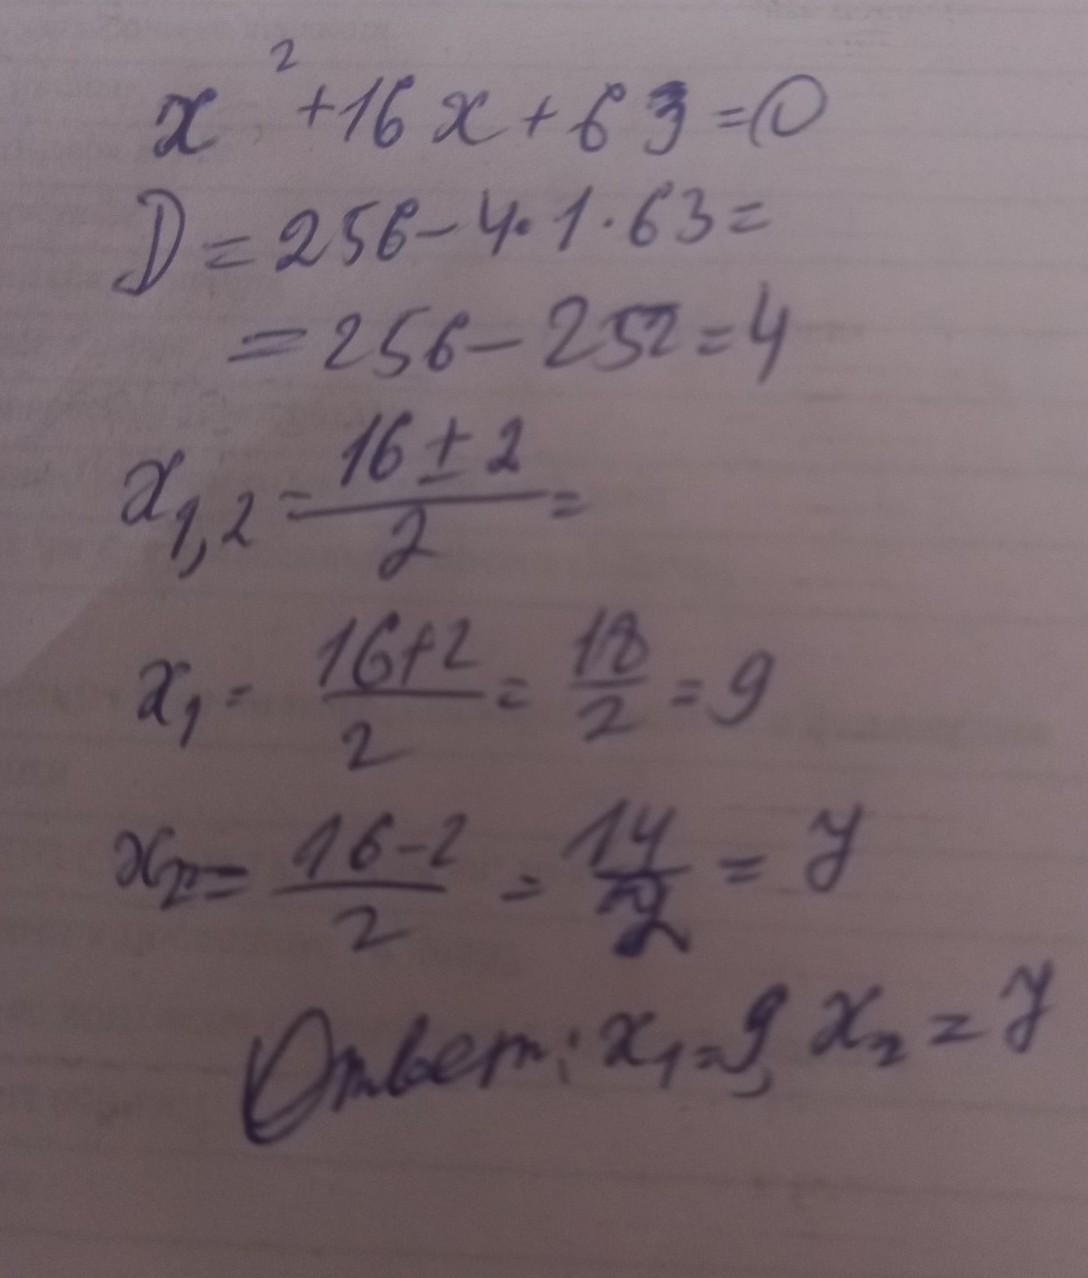 x² + 16x + 63 = 0
D = 256 - 4 · 1 · 63 =
= 256 - 252 = 4
x₁,₂ = (16 ± 2)/2 =
x₁ = (16+2)/2 = 18/2 = 9
x₂ = (16-2)/2 = 14/2 = 7
Ответ: x₁ = 9, x₂ = 7